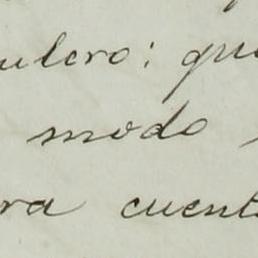 ulero: que
modo
ra cuent